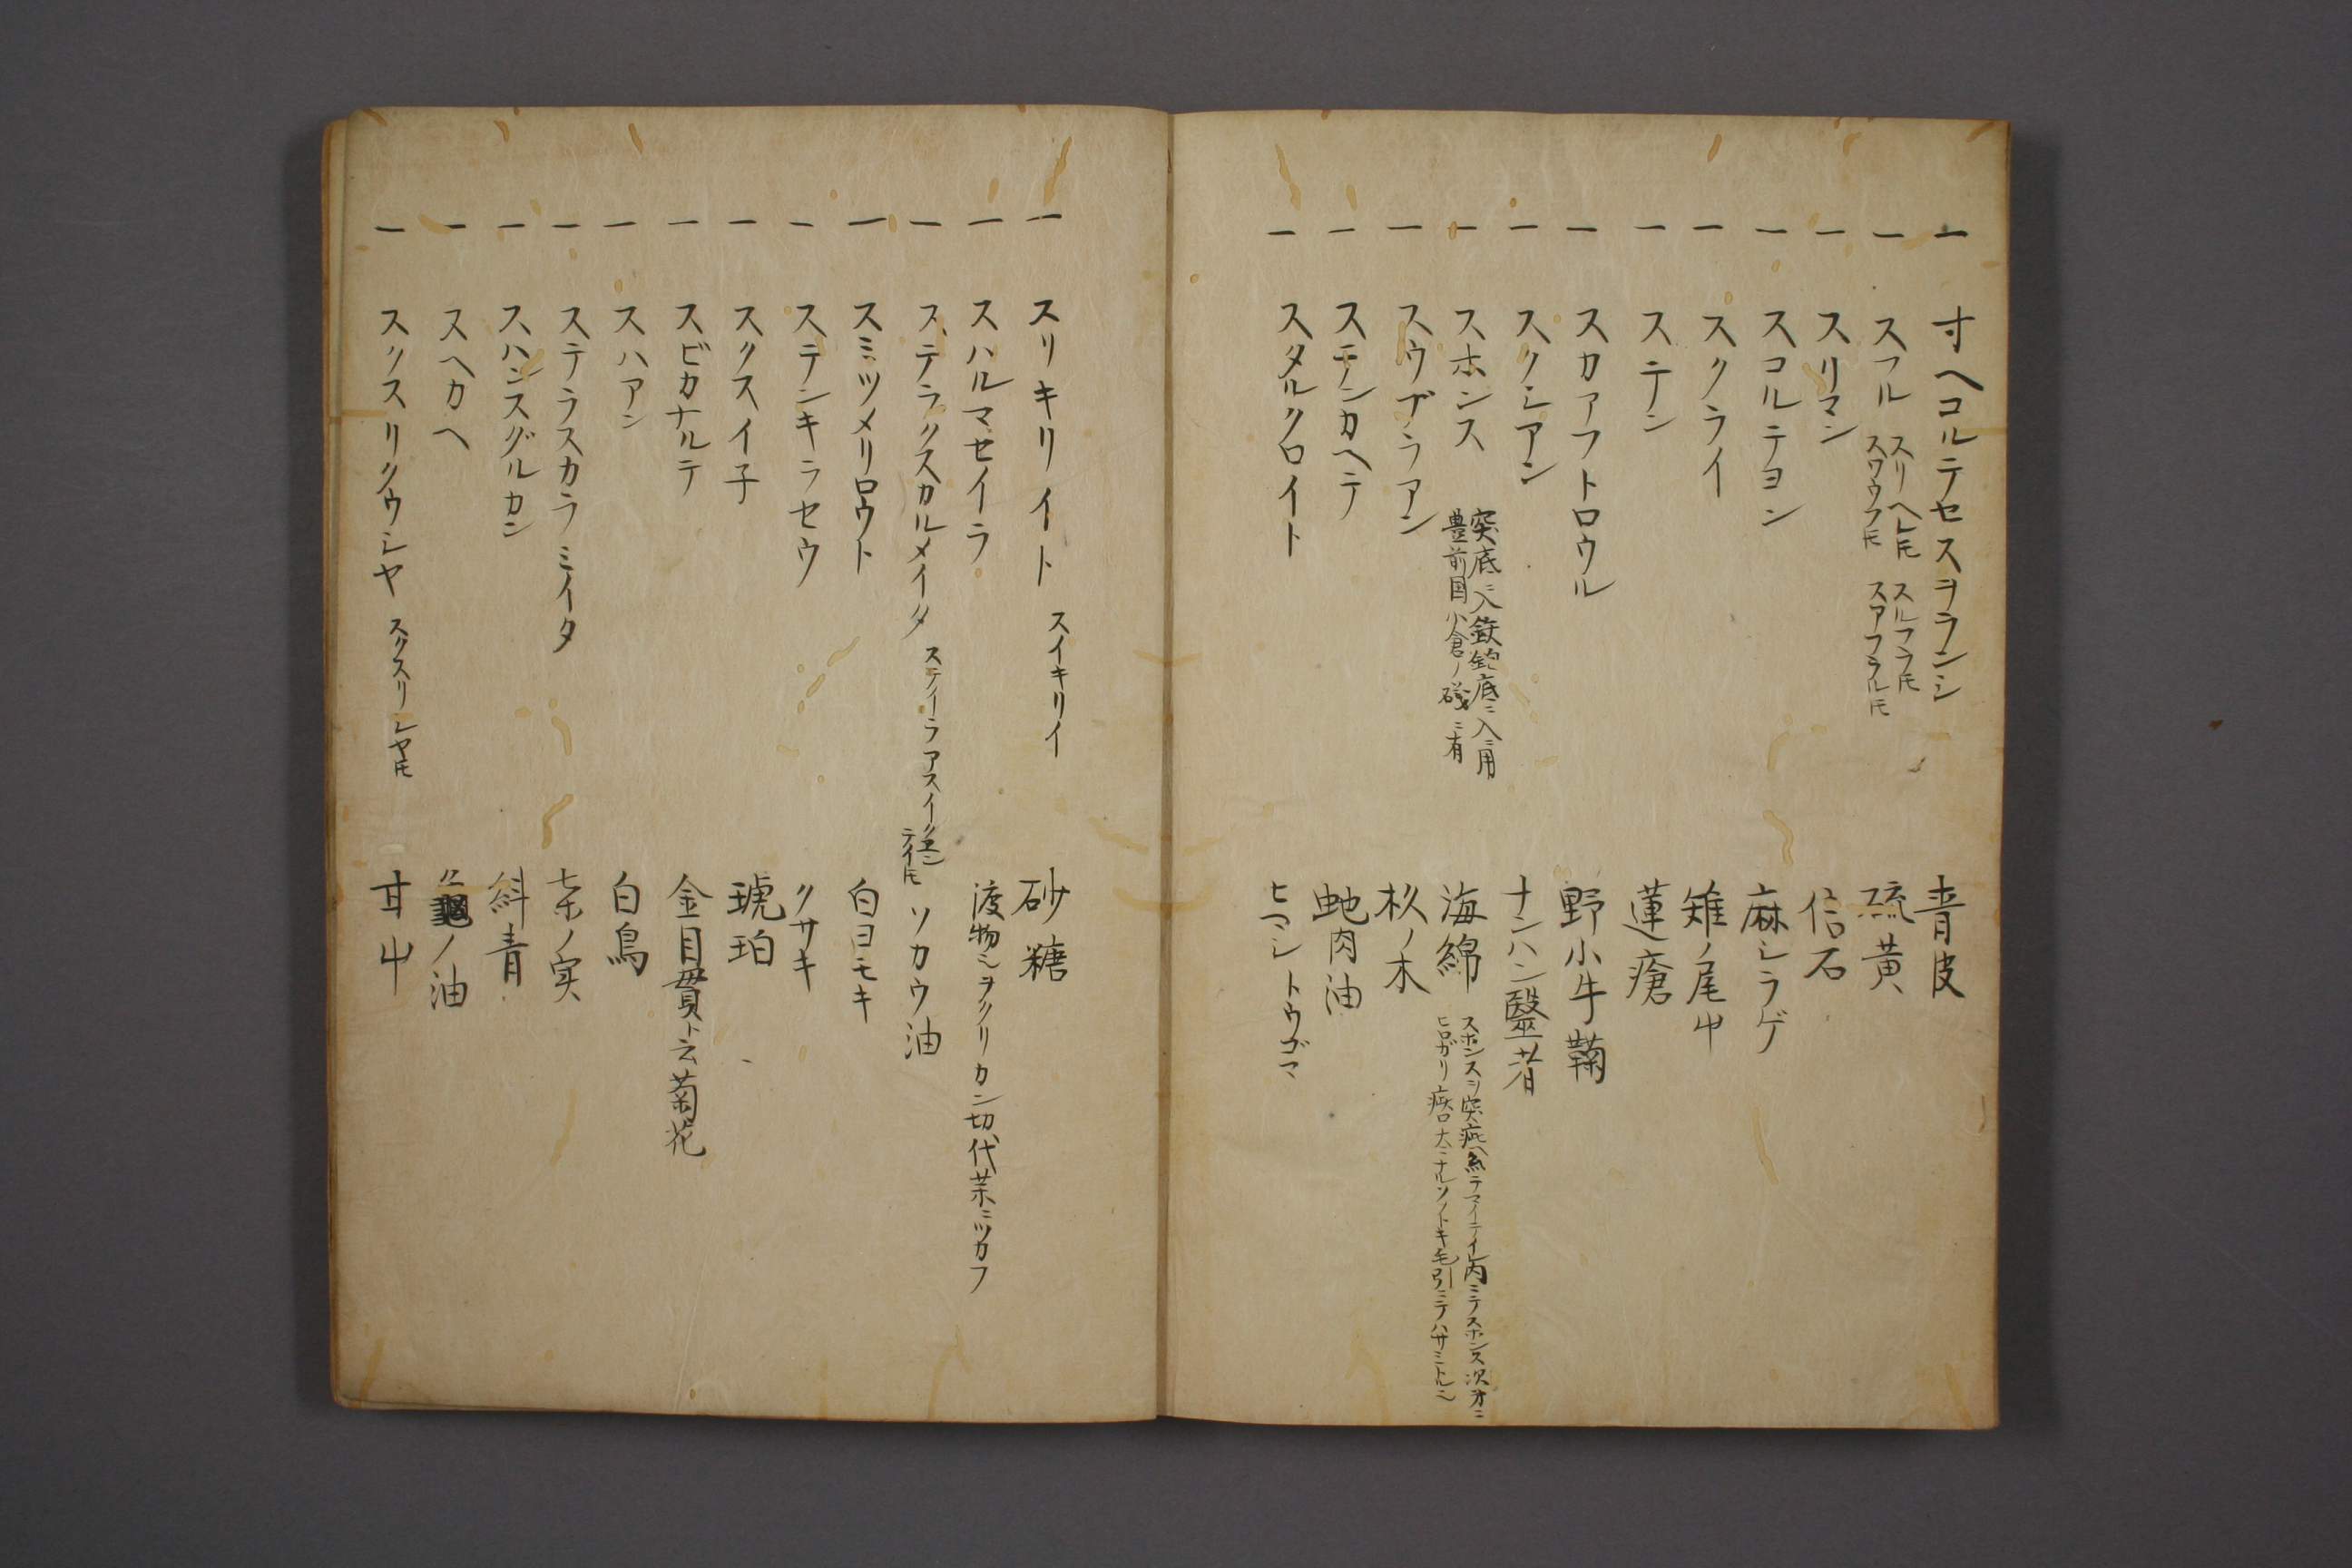 一 寸ヘコルテセスヲランシ 青皮
一 スフル スリヘル𪜈 スワウフ𪜈 スルフラ𪜈 スアフラル𪜈 硫黄
一 スリマン 信石
一 スコルテヨン 麻シラゲ
一 スクライ 雉ノ尾屮
一 ステン 蓮瘡
一 スカアフトロウル 野小牛蒡
一 スクシアン ナンハン醫者
一 スホンス 突底ニ入鉄鉋底ニ入ニ用 豊前国小倉ノ磯ニ有 海綿 スホンスヲ突疵ヘ糸テマイテイレ内ニテスホンス次才ニ ヒロガリ疵口大ニナルソノトキ毛引ニテハサミトル也
一 スウブラアン 杦ノ木
一 スモンカヘテ 虵肉油
一 スタルクロイト ヒマシ トウゴマ
一 スリキリイト スイキリイ 砂糖
一 スハルマセイラ 渡物也ヲクリカン切代茶ニツカフ
一 ステラクスカルメイタ ステイラアスイクエン テイ𪜈 ソカウ油
一 スミツメリロウト 白ヨモキ
一 ステンキラセウ クサキ
一 スクスイ子 琥珀
一 スビカナルテ 金目貫ト云菊花
一 スハアン 白鳥
一 ステラスカラミイタ 七木ノ実
一 スハンスグルカン 斜青
一 スヘカヘ ノ油
一 スクスリクウシヤ スクスリシヤ𪜈 甘屮